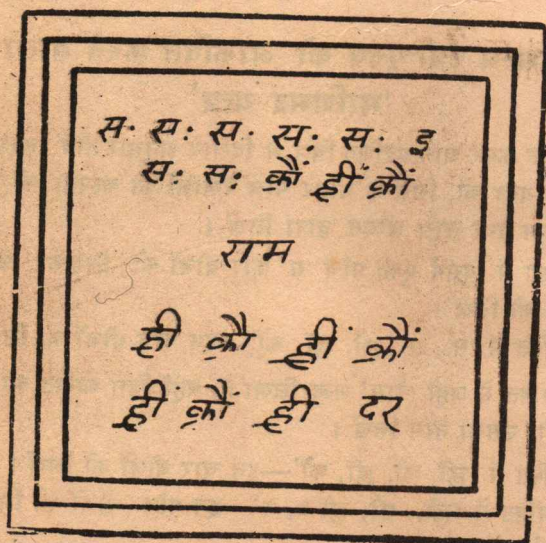 स· सः स· सः स· इ
सः सः क्रौं ह्रीं क्रौं
राम
ह्री क्रौ ह्रीं क्रौं
ह्री क्रौं ह्री दर